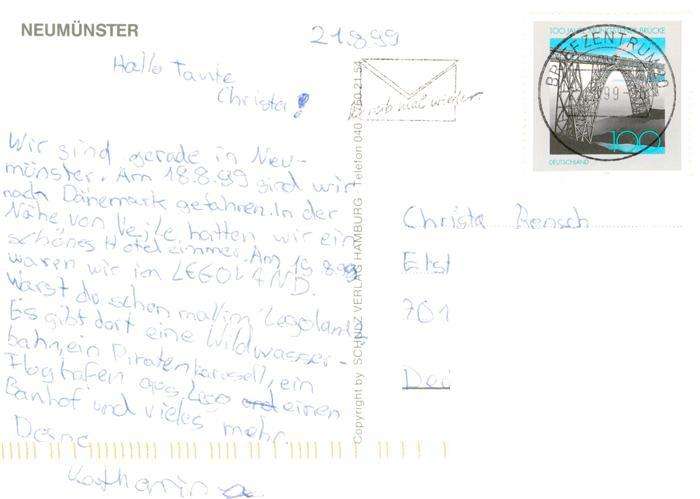 NEUMÜNSTER
21.8.99
Hallo Tante
Christa!
Wir sind gerade in Neu-
münster. Am 18.8.99 sind wir
nach Dänemark gefahren. In der
Nähe von Vejle hatten wir ein
schönes Hotelzimmer. Am 19.8.99
waren wir im LEGOLAND.
Warst du schon mal im Legoland?
Es gibt dort eine Wildwasser-
bahn, ein Piratenkarussell, ein
Flughafen aus Lego und einen
Banhof und vieles mehr.
Deine
Katharina
Copyright by SCHÖNING VERLAG HAMBURG Telefon 040
Schreib mal wieder
100 JAHRE BRÜCKE
BRIEFZENTRUM
99
100
DEUTSCHLAND
Christa Rensch
Etst
701